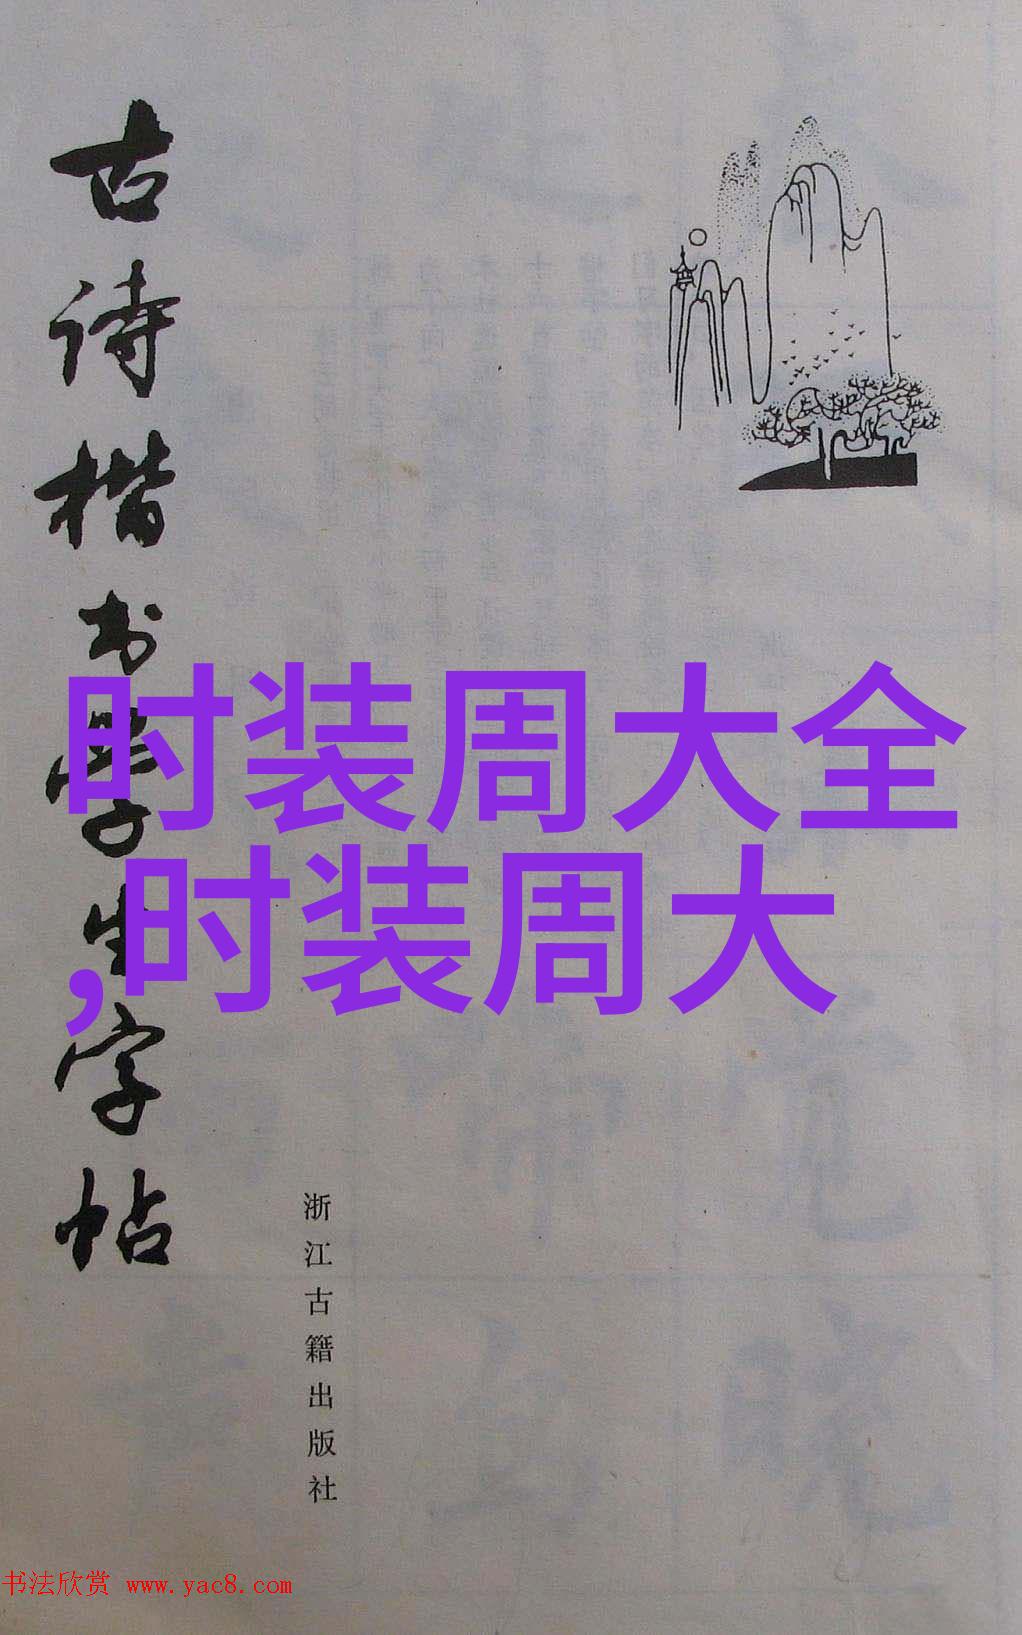 古诗楷书学生字帖
时装周大全
,时装周大
浙江古籍出版社
书法欣赏 www.yac8.com